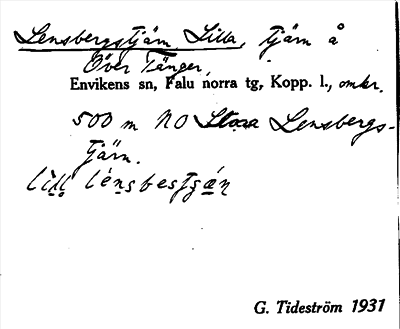 Lensbergstjärn Lilla, tjärn å
Över Tänger,
Envikens sn, Falu norra tg, Kopp. l., omkr.
500 m NO Stora Lensbergs-
tjärn.
G. Tideström 1931